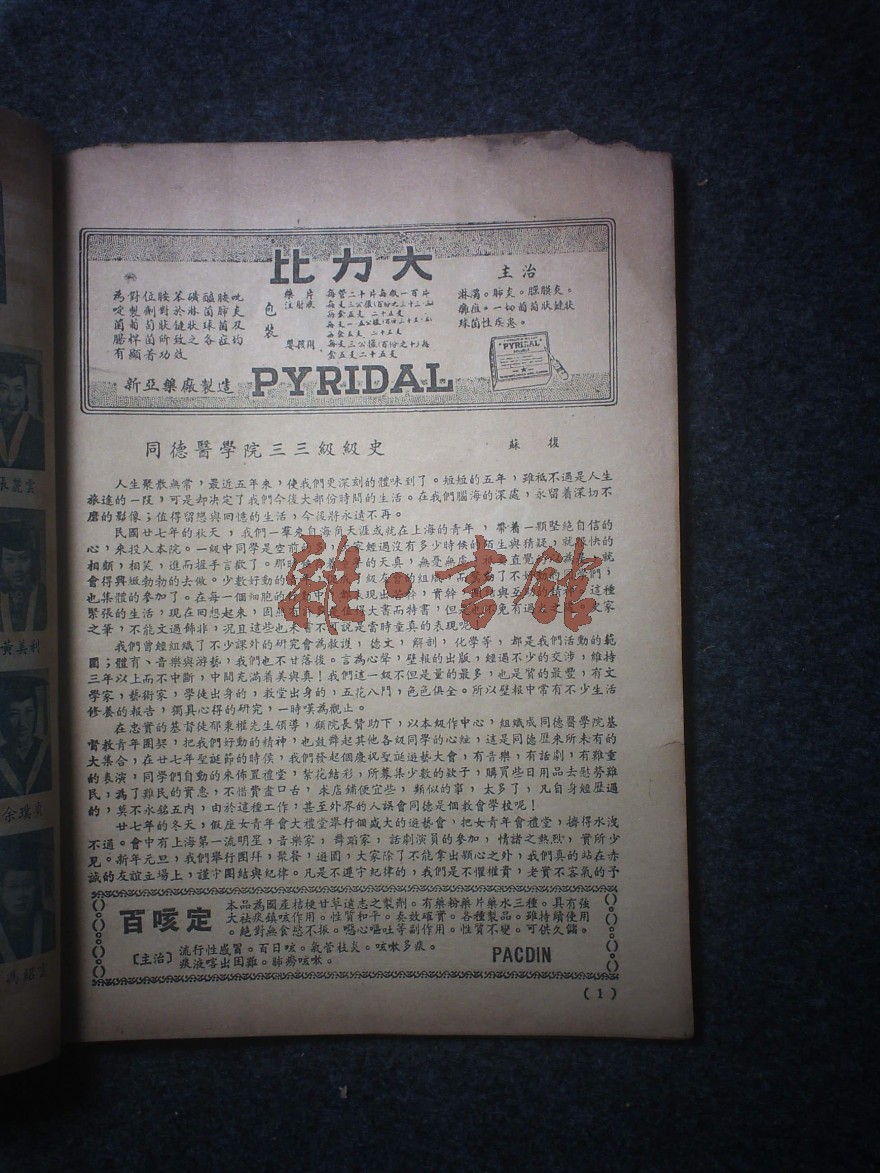 比力大
為對位胺苯磺醯胺吡
啶製劑對於淋菌肺炎
菌葡萄狀鏈狀球菌及
腸桿菌所致之各症的
有顯著功效
包裝
藥片 每管二十片每瓶一百片
注射液
嬰孩用
盒五支二十五支
主治
淋濁。肺炎。腦膜炎。
一切葡萄狀鏈狀
球菌性疾患。
"PYRIDAL"
新亞藥廠製造 PYRIDAL
同德醫學院三三級級史
蘇復
人生聚散無常，最近五年來，使我們更深刻的體味到了。短短的五年，雖祇不過是人生
旅途的一段，可是却決定了我們今後大部份時間的生活。在我們腦海的深處，永留着深切不
磨的影像；值得留戀與回憶的生活，今後將永遠不再。
民國廿七年的秋天，我們一羣來自海角天涯或就在上海的青年，帶着一顆堅絶自信的
心，來投入本院。一級中同學是空前的多，大家經過沒有多少時候的陌生與猜疑，就很快的
相顧，相笑，進而握手言歡了。那時
會得興緻勃勃的去做。少數好動的
也集體的參加了。在每一個細胞的
緊張的生活，現在回想起來，
之筆，不能文過飾非，況且這些也未嘗不可說是當時童真的表現呢。
我們曾經組織了不少課外的研究會為救護，德文，解剖，化學等，都是我們活動的範
圍；體育、音樂與游藝，我們也不甘落後。言為心聲，壁報的出版，經過不少的交涉，維持
三年以上而不中斷，中間充滿着美與真！我們這一級不但是量的最多，也是質的最豐，有文
學家，藝術家，學徒出身的，教堂出身的，五花八門，色色俱全。所以壁報中常有不少生活
修養的報告，獨具心得的研究，一時嘆為觀止。
在忠實的基督徒郁秉權先生領導，顧院長贊助下，以本級作中心，組織成同德醫學院基
督教青年團契，把我們好動的精神，也鼓舞起其他各級同學的心絃，這是同德歷來所未有的
大集合，在廿七年聖誕節的時侯，我們發起個慶祝聖誕遊藝大會，有音樂，有話劇，有難童
的表演，同學們自動的來佈置禮堂，紮花結彩，所募集少數的欵子，購買些日用品去慰勞難
民；為了難民的實惠，不惜費盡口舌，求店鋪便宜些，類似的事，太多了，凡自身經歷過
的，莫不永銘五內，由於這種工作，甚至外界的人誤會同德是個教會學校呢！
廿七年的冬天，假座女青年會大禮堂舉行個盛大的遊藝會，把女青年會禮堂，擠得水洩
不通。會中有上海第一流明星，音樂家，舞蹈家，話劇演員的參加，情緒之熱烈，實所少
見。新年元旦，我們舉行團拜，聚餐，遊園，大家除了不能拿出顆心之外，我們真的站在赤
誠的友誼立場上，謹守團結與紀律。凡是不遵守紀律的，我們是不懼權貴，老實不客氣的予
百咳定
本品為國產桔梗甘草遠志之製劑。有藥粉藥片藥水三種。具有強
大祛痰鎮咳作用。性質和平。奏效確實。各種製品。雖持續使用
。絕對無食慾不振。噁心嘔吐等副作用。性質不變。可供久儲。
〔主治〕流行性感冒。百日咳。氣管枝炎。咳嗽多痰。
痰液喀出困難。肺癆咳嗽。
PACDIN
(1)
雜·書館
張麗雲
黃美利
余瑞